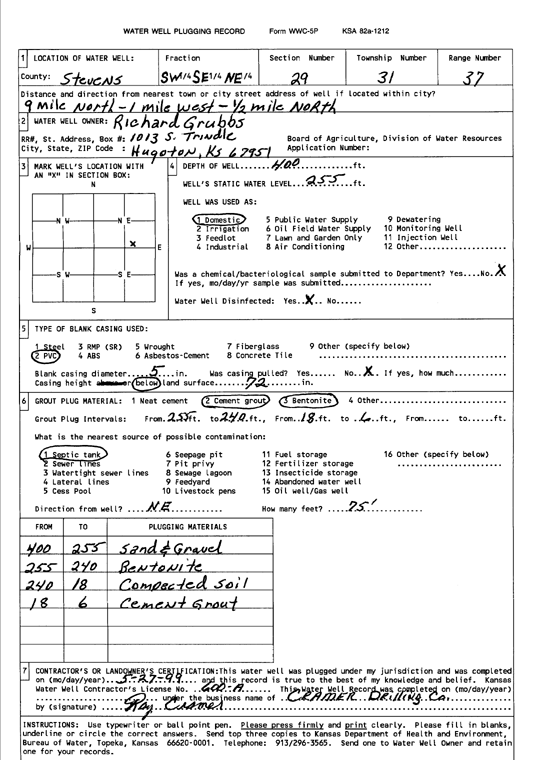 WATER WELL PLUGGING RECORD Form WWC-5P KSA 82a-1212
1 LOCATION OF WATER WELL: Fraction Section Number Township Number Range Number
County: Stevens SW1/4 SE1/4 NE1/4 29 31 37
Distance and direction from nearest town or city street address of well if located within city?
9 mile North - 1 mile west - 1/2 mile North
2 WATER WELL OWNER: Richard Grubbs
RR#, St. Address, Box #: 1013 S. Trindle Board of Agriculture, Division of Water Resources
City, State, ZIP Code : Hugoton, Ks 67951 Application Number:
3 MARK WELL'S LOCATION WITH 4 DEPTH OF WELL....400............ft.
AN "X" IN SECTION BOX:
N WELL'S STATIC WATER LEVEL...255.....ft.
WELL WAS USED AS:
N W N E 1 Domestic 5 Public Water Supply 9 Dewatering
2 Irrigation 6 Oil Field Water Supply 10 Monitoring Well
W X E 3 Feedlot 7 Lawn and Garden Only 11 Injection Well
4 Industrial 8 Air Conditioning 12 Other...............
S W S E Was a chemical/bacteriological sample submitted to Department? Yes....No.X
If yes, mo/day/yr sample was submitted.....................
S Water Well Disinfected: Yes..X.. No......
5 TYPE OF BLANK CASING USED:
1 Steel 3 RMP (SR) 5 Wrought 7 Fiberglass 9 Other (specify below)
2 PVC 4 ABS 6 Asbestos-Cement 8 Concrete Tile .........................
Blank casing diameter....5....in. Was casing pulled? Yes...... No..X.. If yes, how much...........
Casing height above or below land surface.......72..........in.
6 GROUT PLUG MATERIAL: 1 Neat cement 2 Cement grout 3 Bentonite 4 Other...........................
Grout Plug Intervals: From.255.ft. to 240.ft., From..18.ft. to ..6..ft., From...... to......ft.
What is the nearest source of possible contamination:
1 Septic tank 6 Seepage pit 11 Fuel storage 16 Other (specify below)
2 Sewer lines 7 Pit privy 12 Fertilizer storage .....................
3 Watertight sewer lines 8 Sewage lagoon 13 Insecticide storage
4 Lateral lines 9 Feedyard 14 Abandoned water well
5 Cess Pool 10 Livestock pens 15 Oil well/Gas well
Direction from well? ....NE............ How many feet? ...75'.........
FROM TO PLUGGING MATERIALS
400 255 Sand & Gravel
255 240 Bentonite
240 18 Compacted Soil
18 6 Cement Grout
7 CONTRACTOR'S OR LANDOWNER'S CERTIFICATION: This water well was plugged under my jurisdiction and was completed
on (mo/day/year)..5-27-99... and this record is true to the best of my knowledge and belief. Kansas
Water Well Contractor's License No. ..600-A...... This Water Well Record was completed on (mo/day/year)
................... under the business name of ..CRAMER Drilling Co.
by (signature) ..Ray Cramer
INSTRUCTIONS: Use typewriter or ball point pen. Please press firmly and print clearly. Please fill in blanks,
underline or circle the correct answers. Send top three copies to Kansas Department of Health and Environment,
Bureau of Water, Topeka, Kansas 66620-0001. Telephone: 913/296-3565. Send one to Water Well Owner and retain
one for your records.